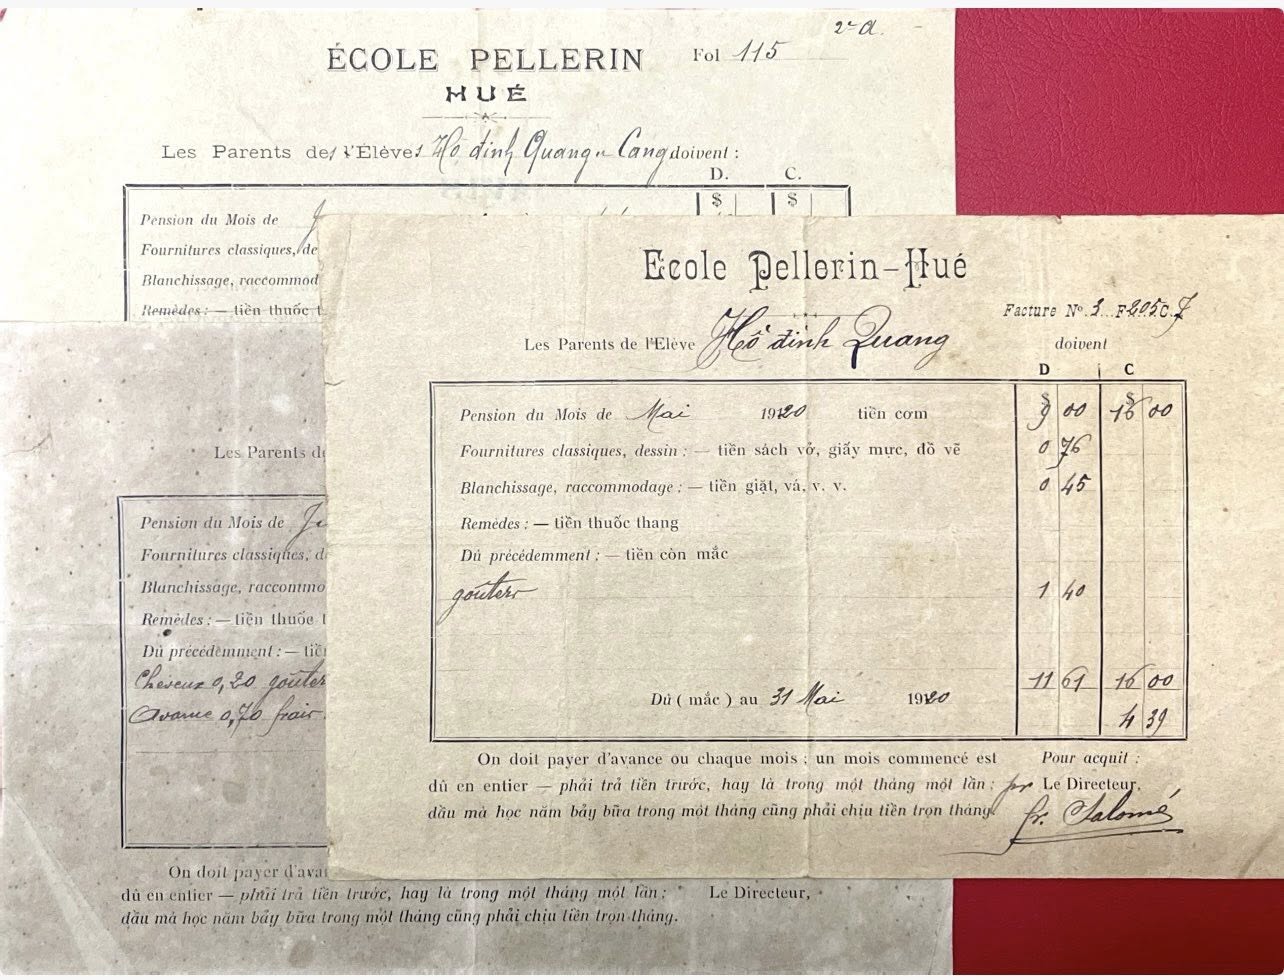 2e A.
ÉCOLE PELLERIN
Fol 115
HUÉ
Les Parents des l'Élèves Hồ đinh Quang Cang doivent :
D. C.
$ $
Pension du Mois de
Fournitures classiques, de
Blanchissage, raccommod
Remèdes : — tiền thuốc t
Ecole Pellerin-Hué
Facture No 3 F 205 C. 7
Les Parents de l'Elève Hồ đinh Quang doivent
D C
$ $
Pension du Mois de Mai 1920 tiền cơm 9 00 16 00
Fournitures classiques, dessin : — tiền sách vở, giấy mực, đồ vẽ 0 76
Blanchissage, raccommodage : — tiền giặt, vá, v. v. 0 45
Remèdes : — tiền thuốc thang
Dû précédemment : — tiền còn mắc
goûters 1 40
11 61 16 00
Dû ( mắc ) au 31 Mai 1920
4 39
On doit payer d'avance ou chaque mois ; un mois commencé est
dû en entier — phải trả tiền trước, hay là trong một tháng một lần ;
dầu mà học năm bảy bữa trong một tháng cũng phải chịu tiền trọn tháng.
Pour acquit :
pr Le Directeur,
fr. Salomé
Les Parents de
Pension du Mois de
Fournitures classiques, d
Blanchissage, raccommo
Remèdes : — tiền thuốc t
Dû précédemment : — tiề
Cheveux 0,20 goûter
Avance 0,70 frais
On doit payer d'ava
dû en entier — phải trả tiền trước, hay là trong một tháng một lần ;
Le Directeur,
dầu mà học năm bảy bữa trong một tháng cũng phải chịu tiền trọn tháng.